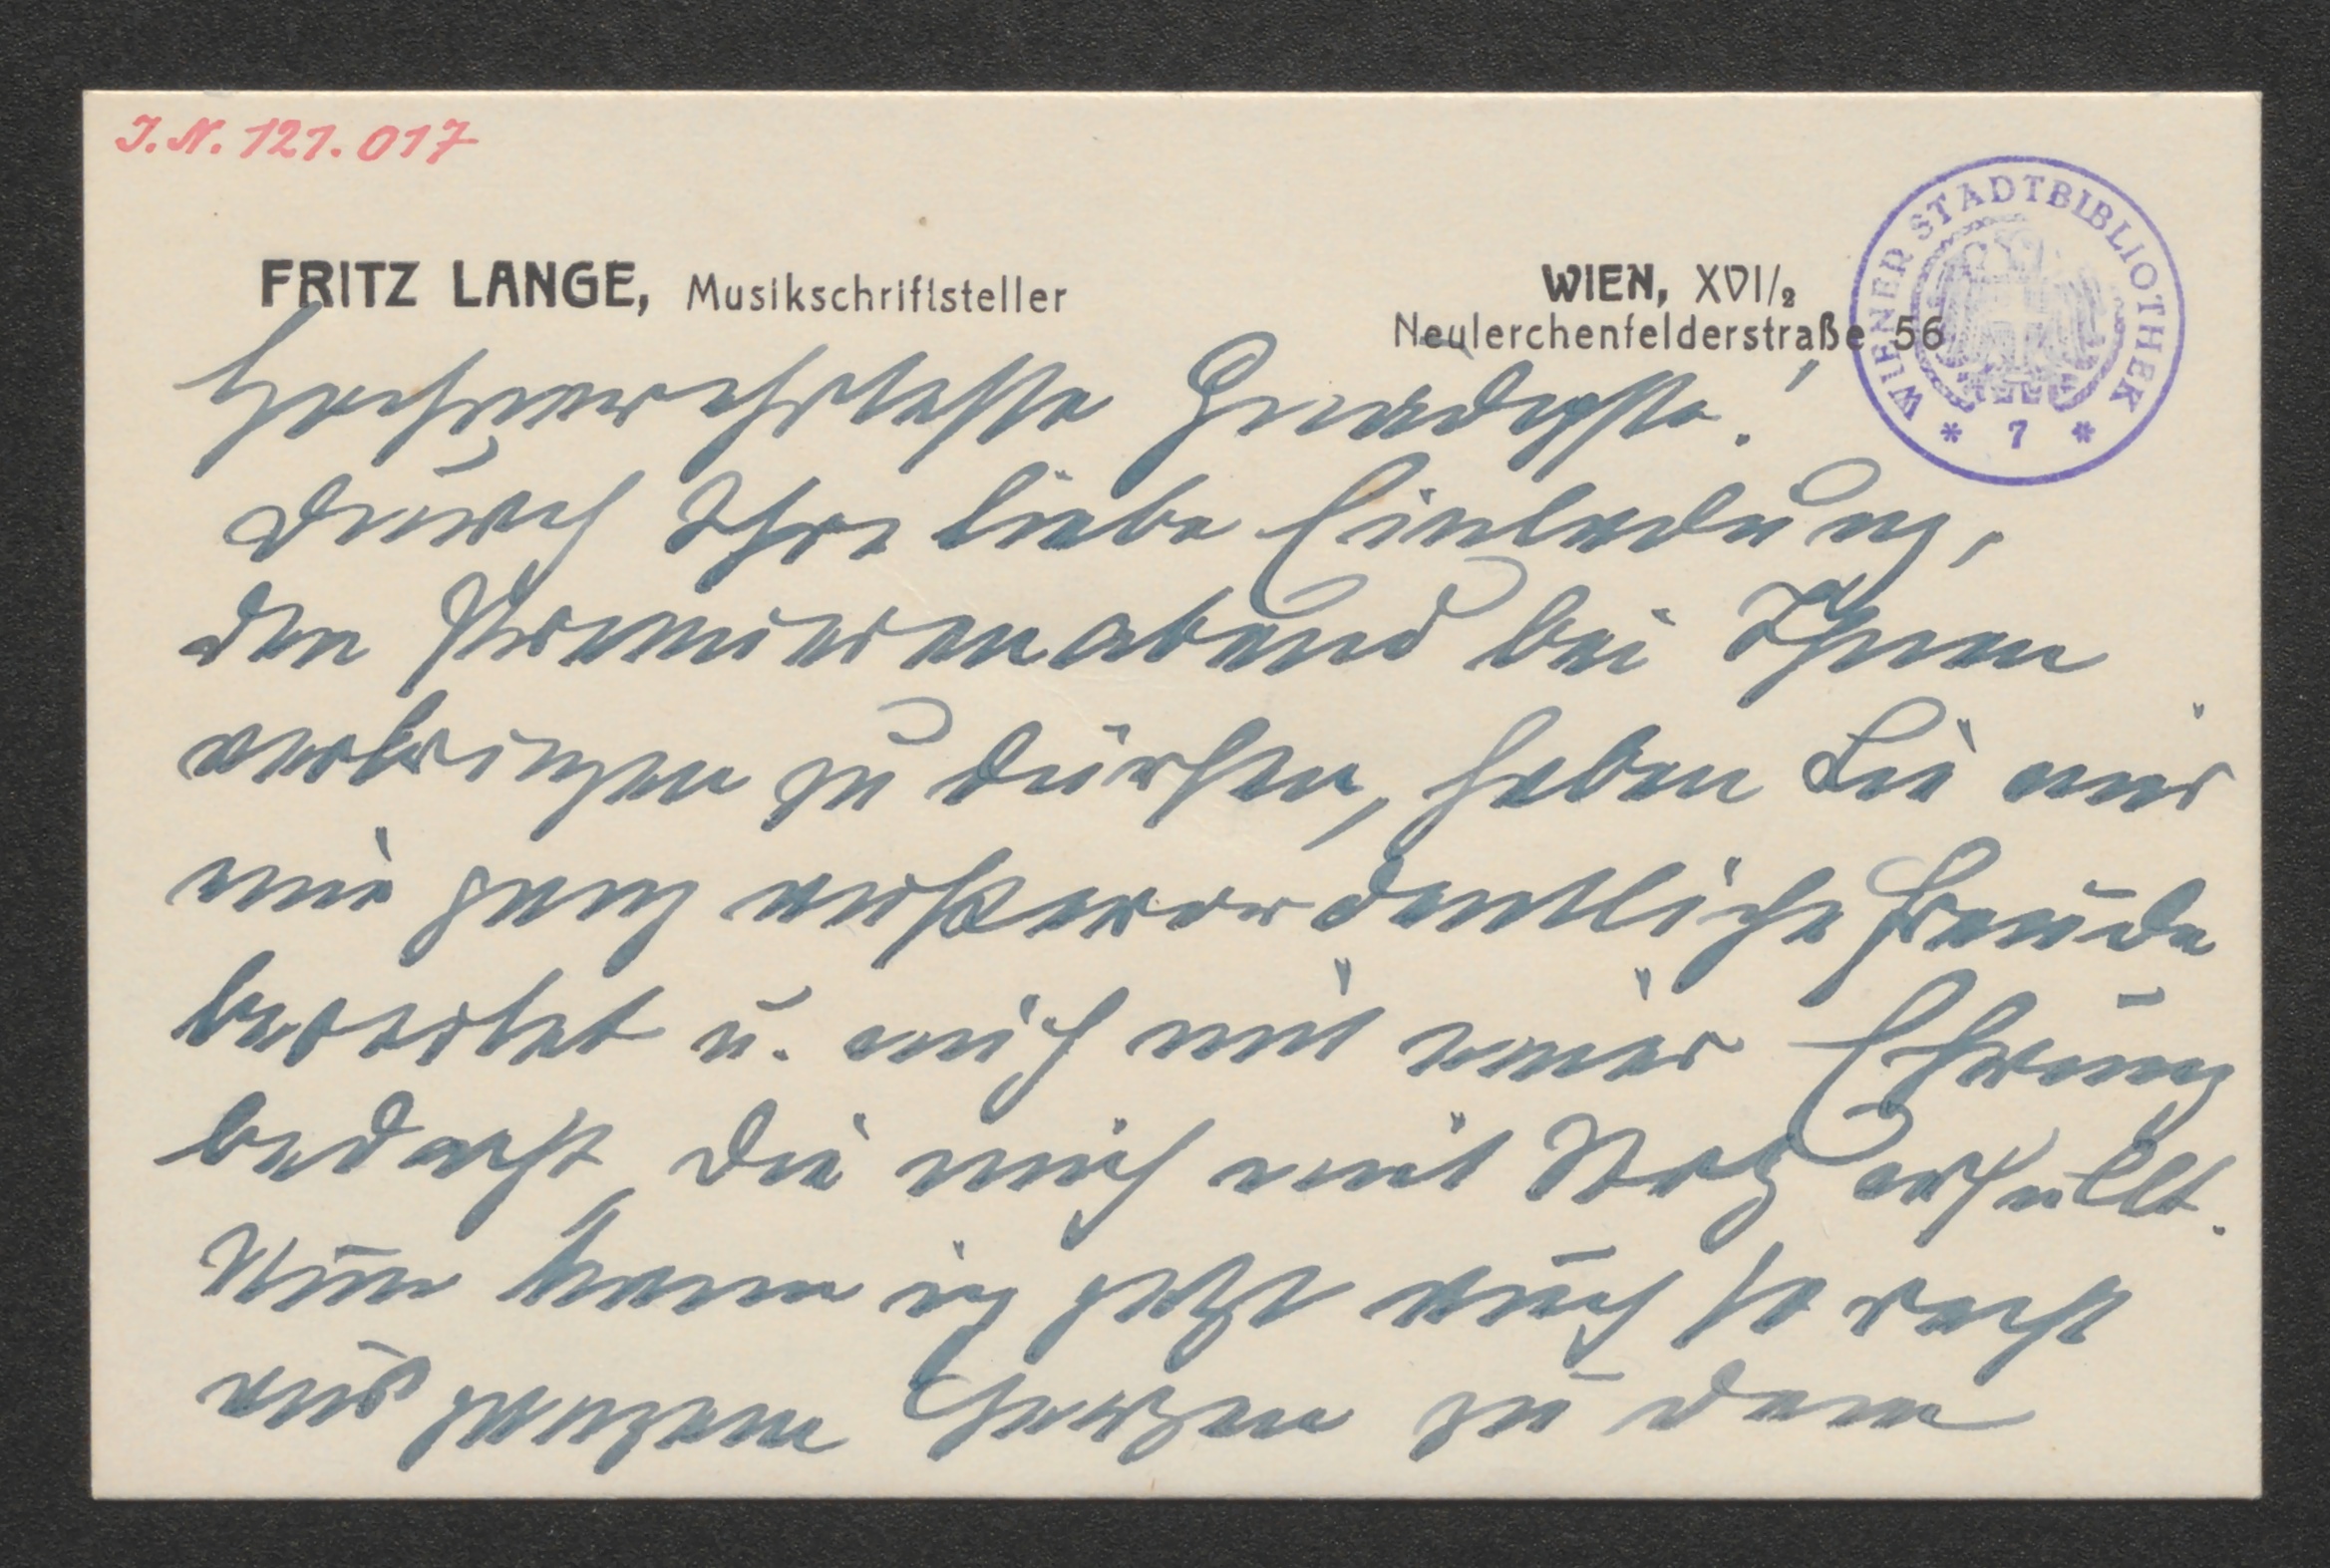 I.N. 121.017
FRITZ LANGE, Musikschriftsteller
WIEN, XVI/2
Neulerchenfelderstraße 56
WIENER STADTBIBLIOTHEK
* 7 *
Hochverehrteste Gnädigste!
Durch Ihre liebe Einladung,
den Premierenabend bei Ihnen
verbringen zu dürfen, haben Sie mir
eine ganz außerordentliche Freude
bereitet u. mich mit einer Ehrung
bedacht, die mich mit Stolz erfüllt.
Nun kann ich jetzt auch so recht
aus ganzem Herzen zu dem